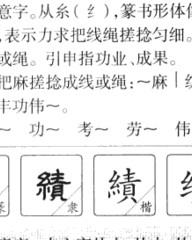 意字。从糸(纟),篆书形体
,表示力求把线绳搓捻匀细。
或绳。引申指功业、成果。
把麻搓捻成线或绳:～麻｜
丰功伟～。
～ 功～ 考～ 劳～ 伟
績 績
隶 楷